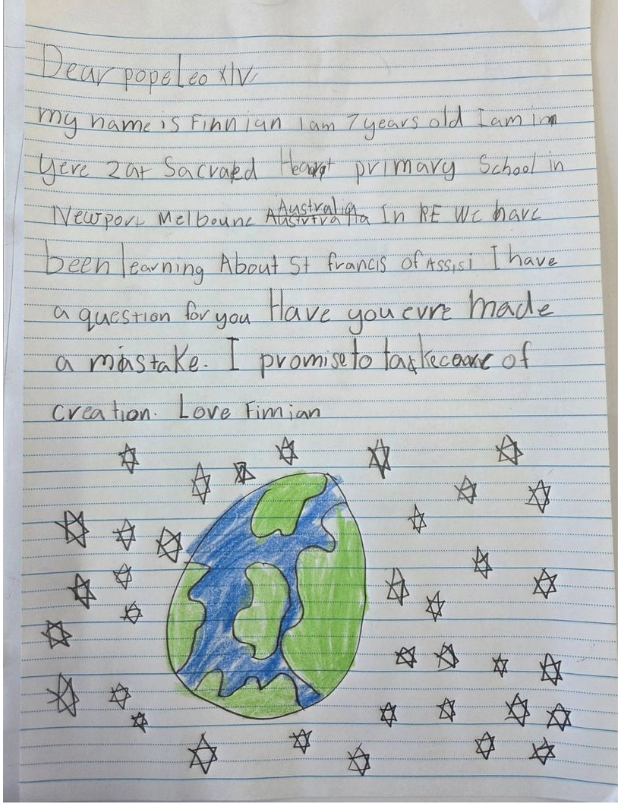 Dear pope Leo XIV
my name is Finnian I am 7 years old I am in
yere 2 at Sacraed Heart primary School in
Newport Melbounc Australia In RE We have
been learning About St francis of Assisi I have
a question for you Have you evre made
a mistake. I promise to take care of
creation. Love Finnian